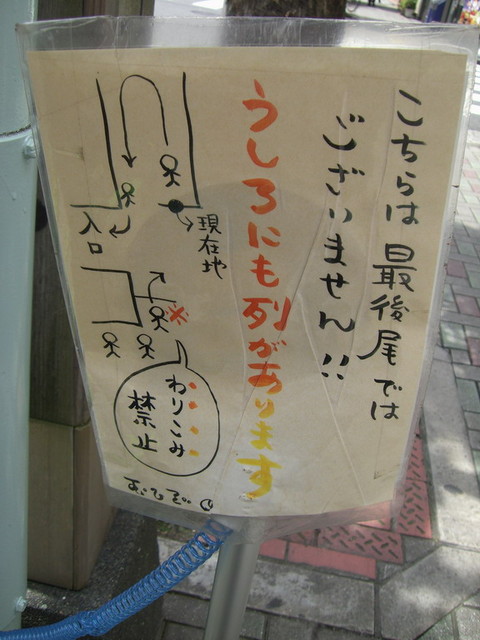 こちらは最後尾では
ございません!!
うしろにも列があります
現在地
入口
※
わりこみ
禁止